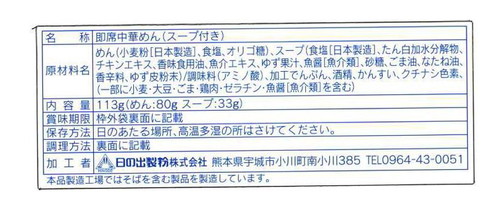 名称 即席中華めん(スープ付き)
原材料名 めん(小麦粉[日本製造]、食塩、オリゴ糖)、スープ(食塩[日本製造]、たん白加水分解物、
チキンエキス、香味食用油、魚介エキス、ゆず果汁、魚醤[魚介類])、砂糖、ごま油、なたね油、
香辛料、ゆず皮粉末)/調味料(アミノ酸)、加工でんぷん、酒精、かんすい、クチナシ色素、
(一部に小麦・大豆・ごま・鶏肉・ゼラチン・魚醤[魚介類]を含む)
内容量 113g(めん:80g スープ:33g)
賞味期限 枠外袋裏面に記載
保存方法 日のあたる場所、高温多湿の所はさけてください。
調理方法 裏面に記載
加工者 日の出製粉株式会社 熊本県宇城市小川町南小川385 TEL0964-43-0051
本品製造工場ではそばを含む製品を製造しています。